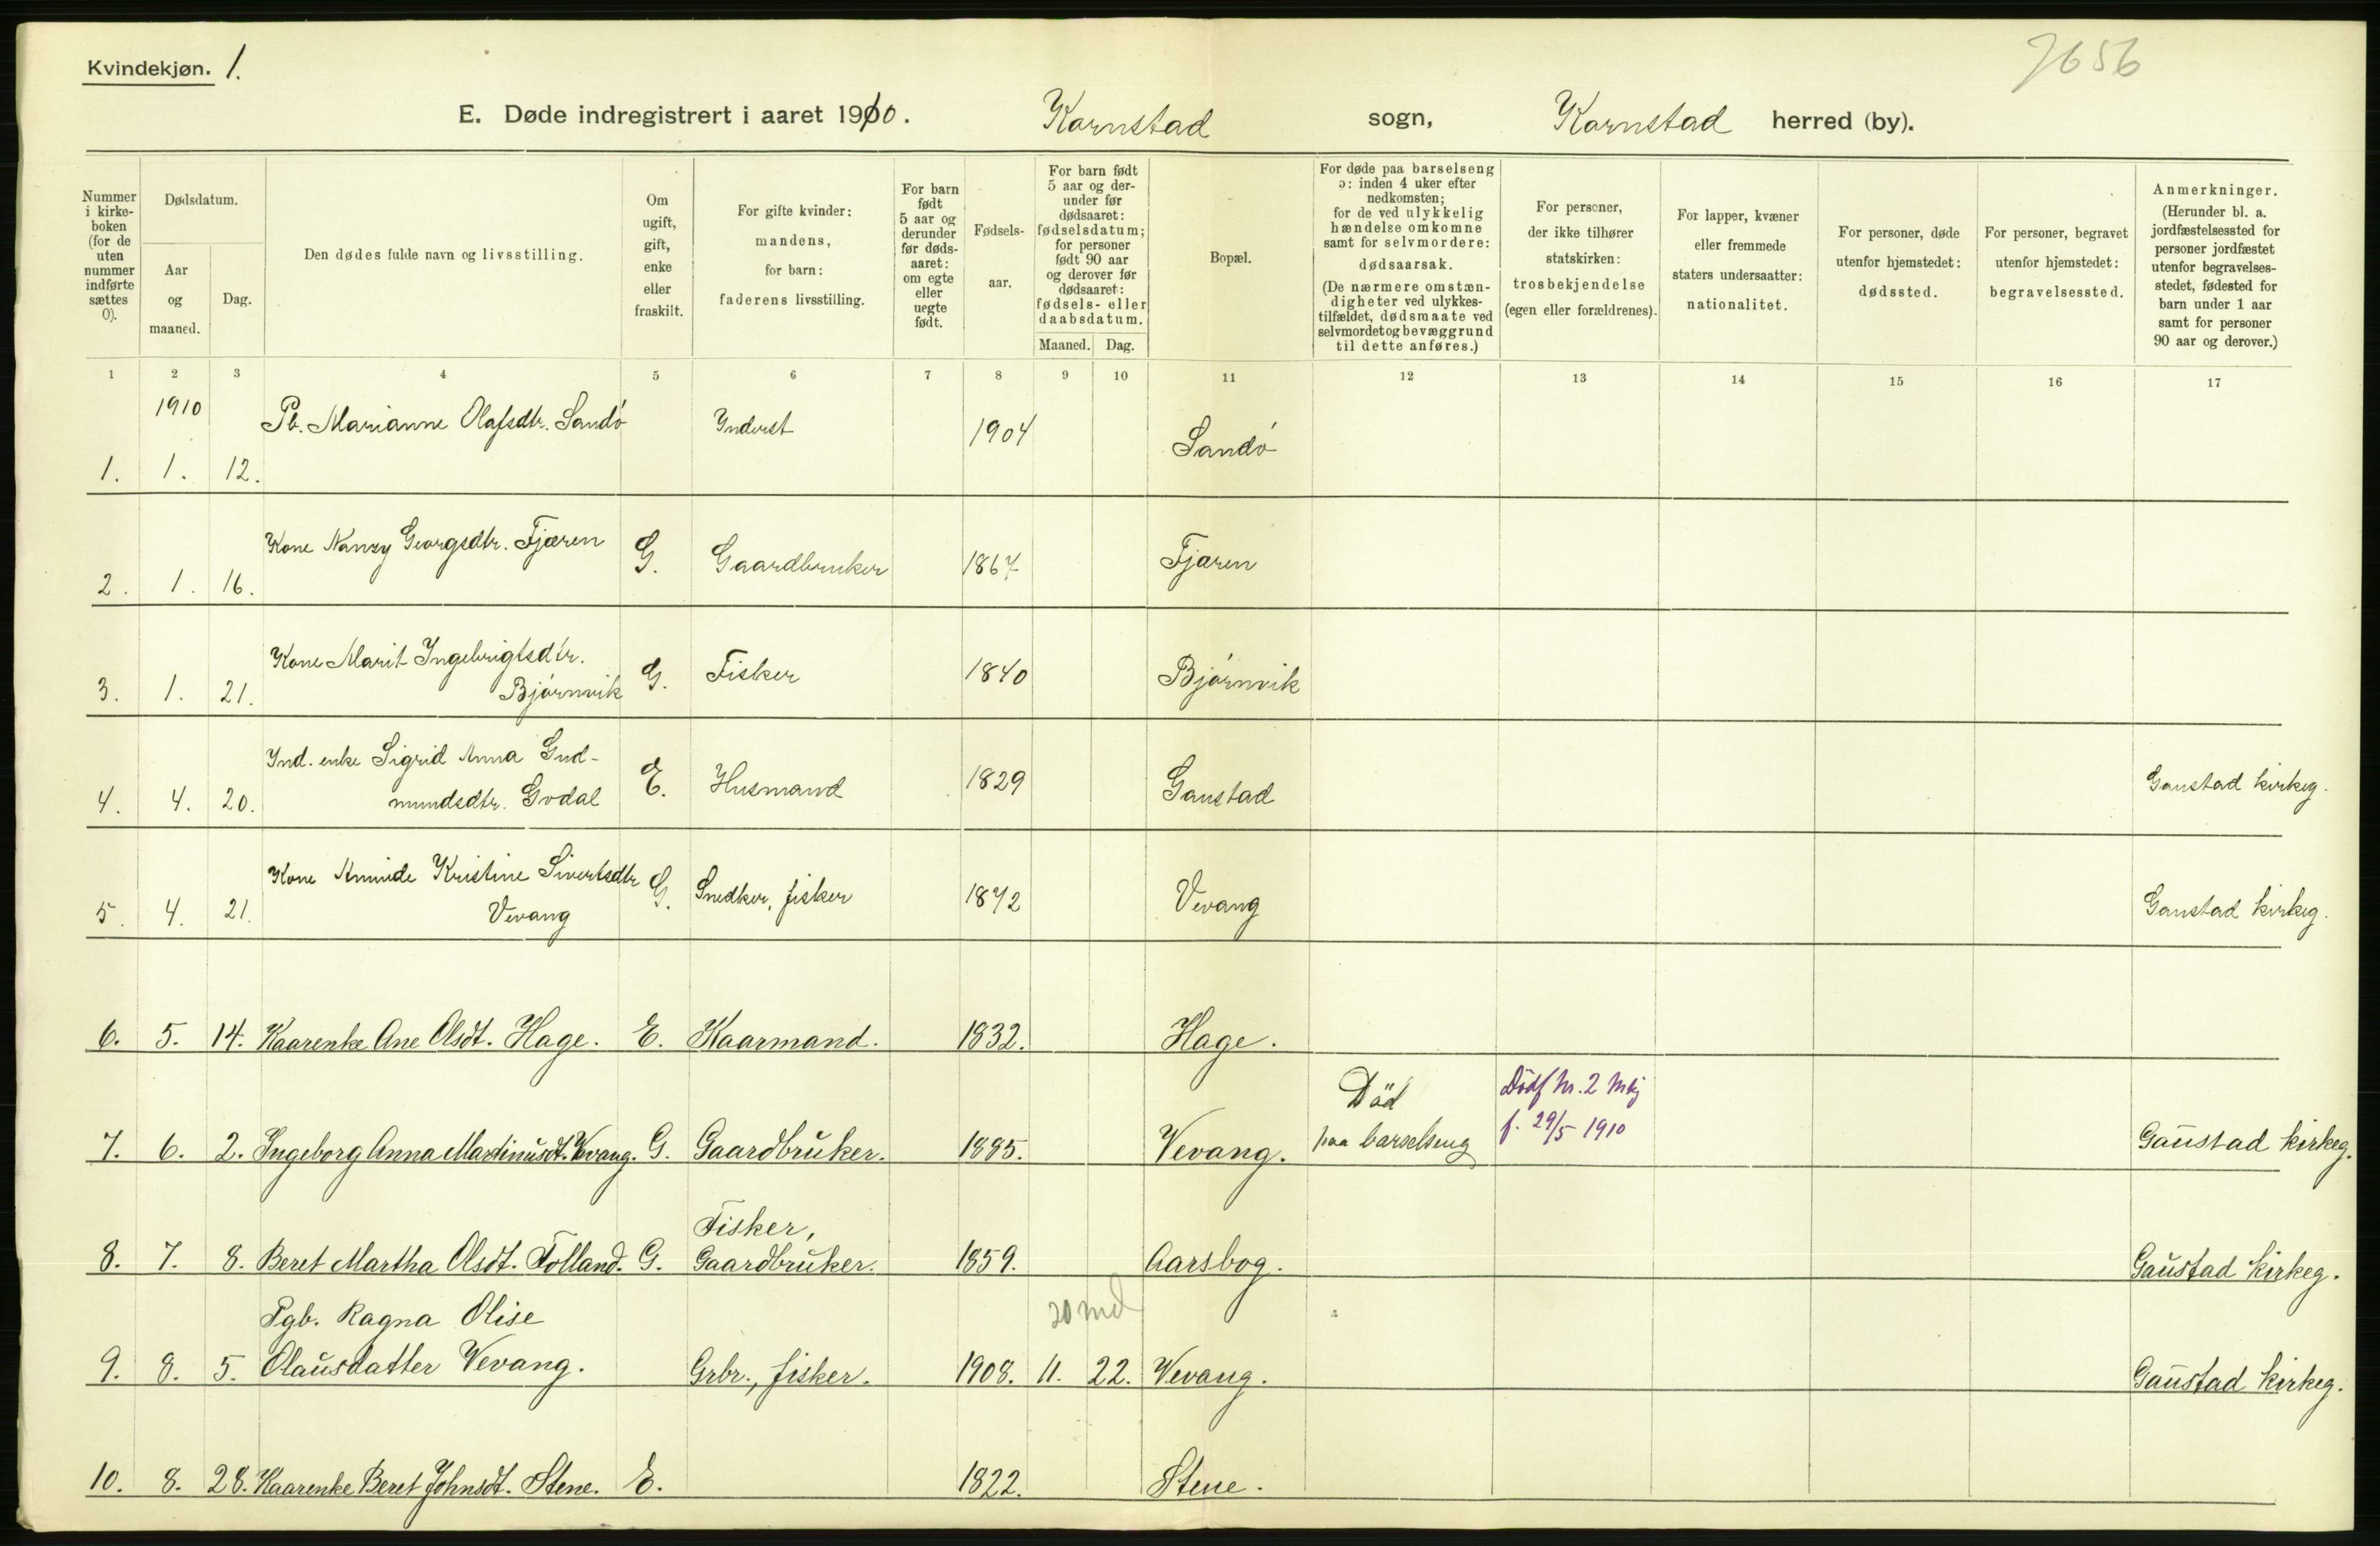 Kvindekjøn. 1.
7656
E. Døde indregistrert i aaret 1910. Kornstad sogn, Kornstad herred (by).
Nummer i kirkeboken (for de uten nummer indførte sættes 0).
Dødsdatum.
Aar og maaned.
Dag.
Den dødes fulde navn og livsstilling.
Om ugift, gift, enke eller fraskilt.
For gifte kvinder: mandens, for barn: faderens livsstilling.
For barn født 5 aar og derunder før dødsaaret: om egte eller uegte født.
Fødselsaar.
For barn født 5 aar og derunder før dødsaaret: fødselsdatum; for personer født 90 aar og derover før dødsaaret: fødsels- eller daabsdatum.
Maaned. Dag.
Bopæl.
For døde paa barselseng ɔ: inden 4 uker efter nedkomsten; for de ved ulykkelig hændelse omkomne samt for selvmordere: dødsaarsak. (De nærmere omstændigheter ved ulykkestilfældet, dødsmaate ved selvmordet og bevæggrund til dette anføres.)
For personer, der ikke tilhører statskirken: trosbekjendelse (egen eller forældrenes).
For lapper, kvæner eller fremmede staters undersaatter: nationalitet.
For personer, døde utenfor hjemstedet: dødssted.
For personer, begravet utenfor hjemstedet: begravelsessted.
Anmerkninger. (Herunder bl. a. jordfæstelsessted for personer jordfæstet utenfor begravelsesstedet, fødested for barn under 1 aar samt for personer 90 aar og derover.)
1 2 3 4 5 6 7 8 9 10 11 12 13 14 15 16 17
1910
1. 1. 12. Pb. Marianne Olafsdtr. Sandö Inderst 1904 Sandö
2. 1. 16. Kone Nanzy Georgsdtr. Fjæren G. Gaardbruker 1867 Fjæren
3. 1. 21. Kone Marit Ingebrigtsdtr.
Bjørnvik G. Fisker 1840 Bjørnvik
Ind. enke Sigrid Anna Gud-
4. 4. 20. mundsdtr. Godal E. Husmand 1829 Gaustad Gaustad kirkeg.
Kone Kristine Sivertsdtr
5. 4. 21. Vevang G. Snedker, fisker 1872 Vevang Gaustad kirkeg.
6. 5. 14. Kaarenke Ane Olsdt. Hage. E. Kaarmand. 1832. Hage.
Död Dödf nr. 2 Mkj
7. 6. 2. Ingeborg Anna Martinusdt. Vevang. G. Gaardbruker. 1885. Vevang. paa barselseng f. 29/5 1910 Gaustad kirkeg.
Fisker,
8. 7. 8. Beret Martha Olsdt. Folland. G. Gaardbruker. 1859. Aarsbog. Gaustad kirkeg.
Pgb. Ragna Olise 20 md
9. 8. 5. Olausdatter Vevang. Grbr., fisker. 1908. 11. 22. Vevang. Gaustad kirkeg.
10. 8. 28. Kaarenke Beret Johnsdt. Stene. E. 1822. Stene.